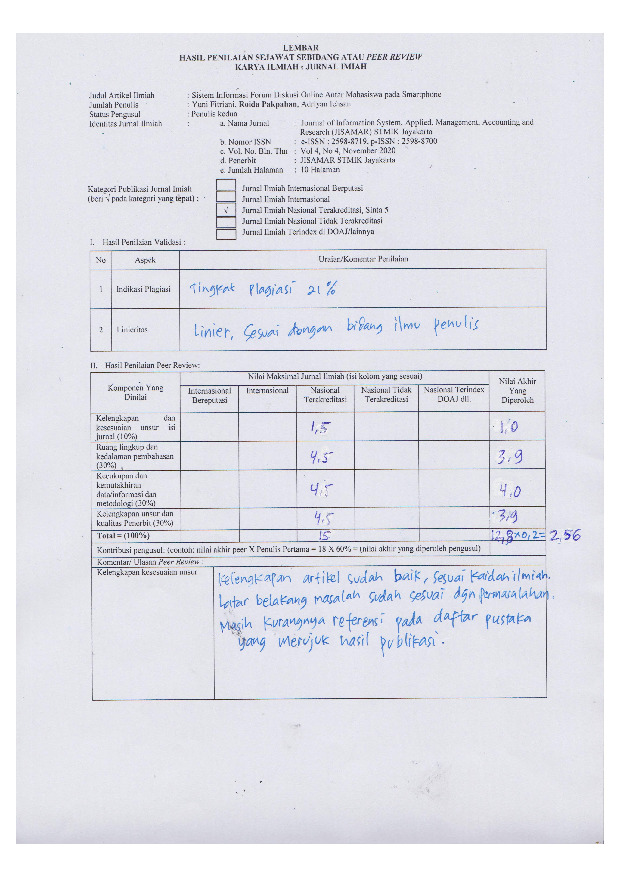 LEMBAR
HASIL PENILAIAN SEJAWAT SEBIDANG ATAU PEER REVIEW
KARYA ILMIAH : JURNAL IMIAH
Judul Artikel Ilmiah : Sistem Informasi Forum Diskusi Online Antar Mahasiswa pada Smartphone
Jumlah Penulis : Yuni Fitriani, Roida Pakpahan, Adriyan Ichsan
Status Pengusul : Penulis kedua
Identitas Jurnal Ilmiah : a. Nama Jurnal : Journal of Information System, Applied, Management, Accounting and
Research (JISAMAR) STMIK Jayakarta
b. Nomor ISSN : e-ISSN : 2598-8719, p-ISSN : 2598-8700
c. Vol. No. Bln. Thn : Vol 4, No 4, November 2020
d. Penerbit : JISAMAR STMIK Jayakarta
e. Jumlah Halaman : 10 Halaman
Kategori Publikasi Jurnal Ilmiah Jurnal Ilmiah Internasional Berputasi
(beri √ pada kategori yang tepat) : Jurnal Ilmiah Internasional
√ Jurnal Ilmiah Nasional Terakreditasi, Sinta 5
Jurnal Ilmiah Nasional Tidak Terakreditasi
Jurnal Ilmiah Terindex di DOAJ/lainnya
I. Hasil Penilaian Validasi :
No Aspek Uraian/Komentar Penilaian
1 Indikasi Plagiasi Tingkat Plagiasi 21%
2 Linieritas Linier, Sesuai dengan bidang ilmu penulis
II. Hasil Penilaian Peer Review:
Komponen Yang Dinilai Nilai Maksimal Jurnal Ilmiah (isi kolom yang sesuai) Nilai Akhir Yang Diperoleh
Internasional Bereputasi Internasional Nasional Terakreditasi Nasional Tidak Terakreditasi Nasional Terindex DOAJ dll.
Kelengkapan dan
kesesuaian unsur isi 1,5 1,0
jurnal (10%)
Ruang lingkup dan
kedalaman pembahasan 4,5 3,9
(30%)
Kecukupan dan
kemutakhiran
data/informasi dan 4,5 4,0
metodologi (30%)
Kelengkapan unsur dan 4,5 3,9
kualitas Penerbit (30%)
Total = (100%) 15 12,8x0,2= 2,56
Kontribusi pengusul: (contoh: nilai akhir peer X Penulis Pertama = 18 X 60% = (nilai akhir yang diperoleh pengusul)
Komentar/ Ulasan Peer Review :
Kelengkapan kesesuaian unsur Kelengkapan artikel sudah baik, sesuai kaidah ilmiah.
Latar belakang masalah sudah sesuai dgn permasalahan.
Masih kurangnya referensi pada daftar pustaka
yang merujuk hasil publikasi.